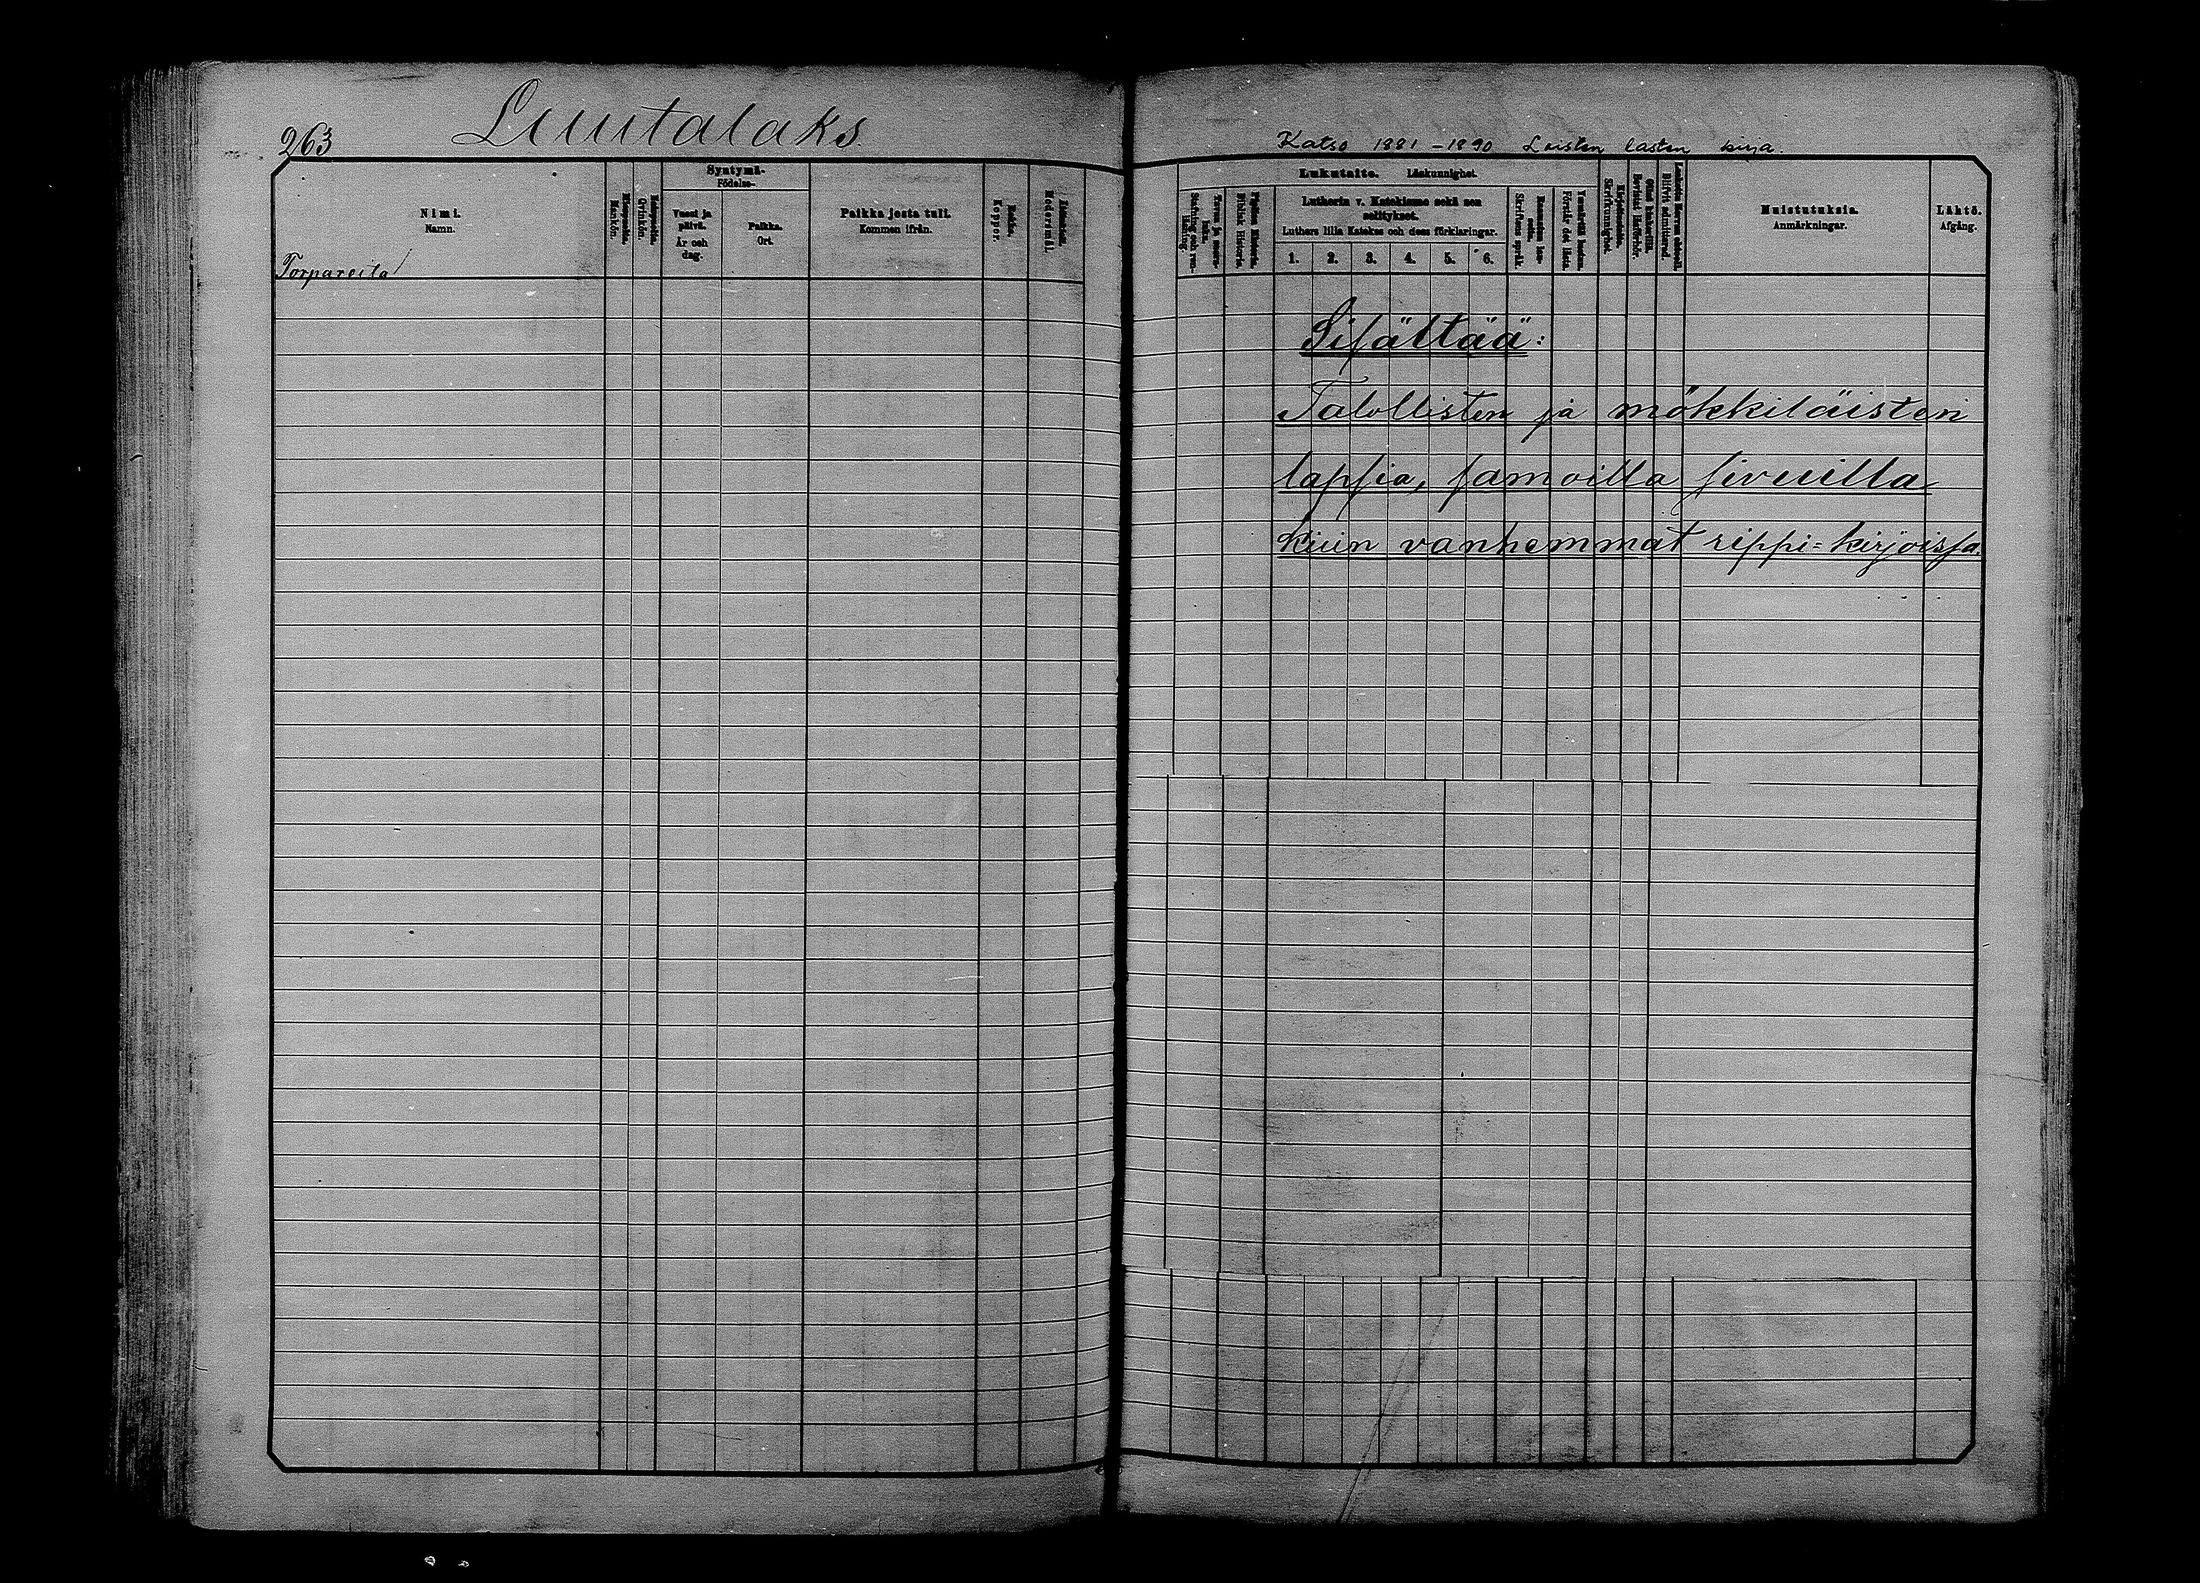 263
Luutalaks.
Syntymä-
Födelse-
Nimi.
Namn.
Miespuolia.
Mankön.
Naispuolia.
Qvinkön.
Vuosi ja
päivä.
År och
dag.
Paikka.
Ort.
Paikka josta tuli.
Kommen ifrån.
Rokko.
Koppor.
Modersmål.
Torpareita
Katso 1881-1890 Loisten lasten kirja.
Lukutaito. Läskunnighet.
Lutherin v. Katekismus sekä sen
selitykset.
Luthers lilla Katekes och dess förklaringar.
1. 2. 3. 4. 5. 6.
Biblisk Historia.
Skriftens språk.
Förstår det lästa.
Kirjoitustaito.
Skrifkunnighet.
Muistutuksia.
Anmärkningar.
Lähtö.
Afgång.
Sisältää:
Talollisten ja mökkiläisten
lapsia, samoilla sivuilla
kuin vanhemmat rippi=kirjoissa.